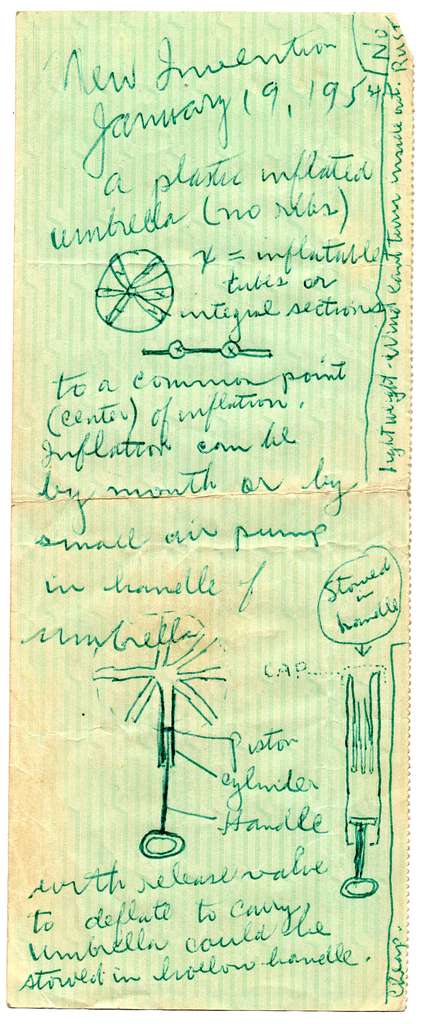 New Invention
January 19, 1954
a plastic inflated
umbrella (no ribs)
x = inflatable
tubes or
integral sections
to a common point
(center) of inflation.
Inflation can be
by mouth or by
small air pump
in handle of
umbrella
Stowed
in
handle
CAP
piston
cylinder
Handle
with release valve
to deflate to carry,
umbrella could be
stowed in hollow handle.
Cheap.
light weight - Wind can't turn inside out. No Rust